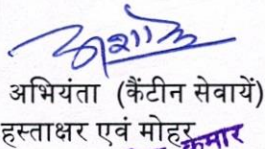 अशोक
अभियंता (कैंटीन सेवायें)
हस्ताक्षर एवं मोहर
कुमार